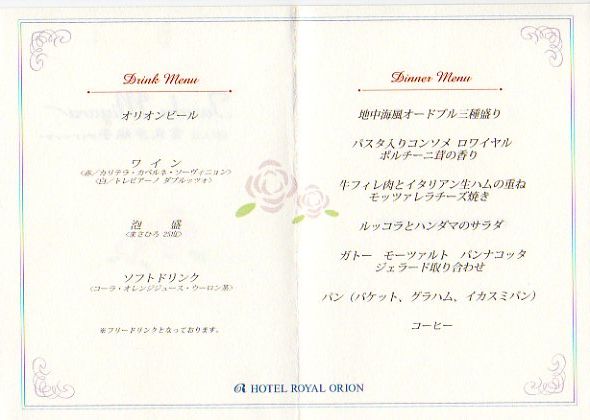 Drink Menu
オリオンビール
ワイン
<赤/カリテラ・カベルネ・ソーヴィニョン>
<白/トレビアーノ ダブルッツォ>
泡盛
<まさひろ 25度>
ソフトドリンク
<コーラ・オレンジジュース・ウーロン茶>
※フリードリンクとなっております。
Dinner Menu
地中海風オードブル三種盛り
パスタ入りコンソメ ロワイヤル
ポルチーニ茸の香り
牛フィレ肉とイタリアン生ハムの重ね
モッツァレラチーズ焼き
ルッコラとハンダマのサラダ
ガトー モーツァルト パンナコッタ
ジェラード取り合わせ
パン（バケット、グラハム、イカスミパン）
コーヒー
HOTEL ROYAL ORION